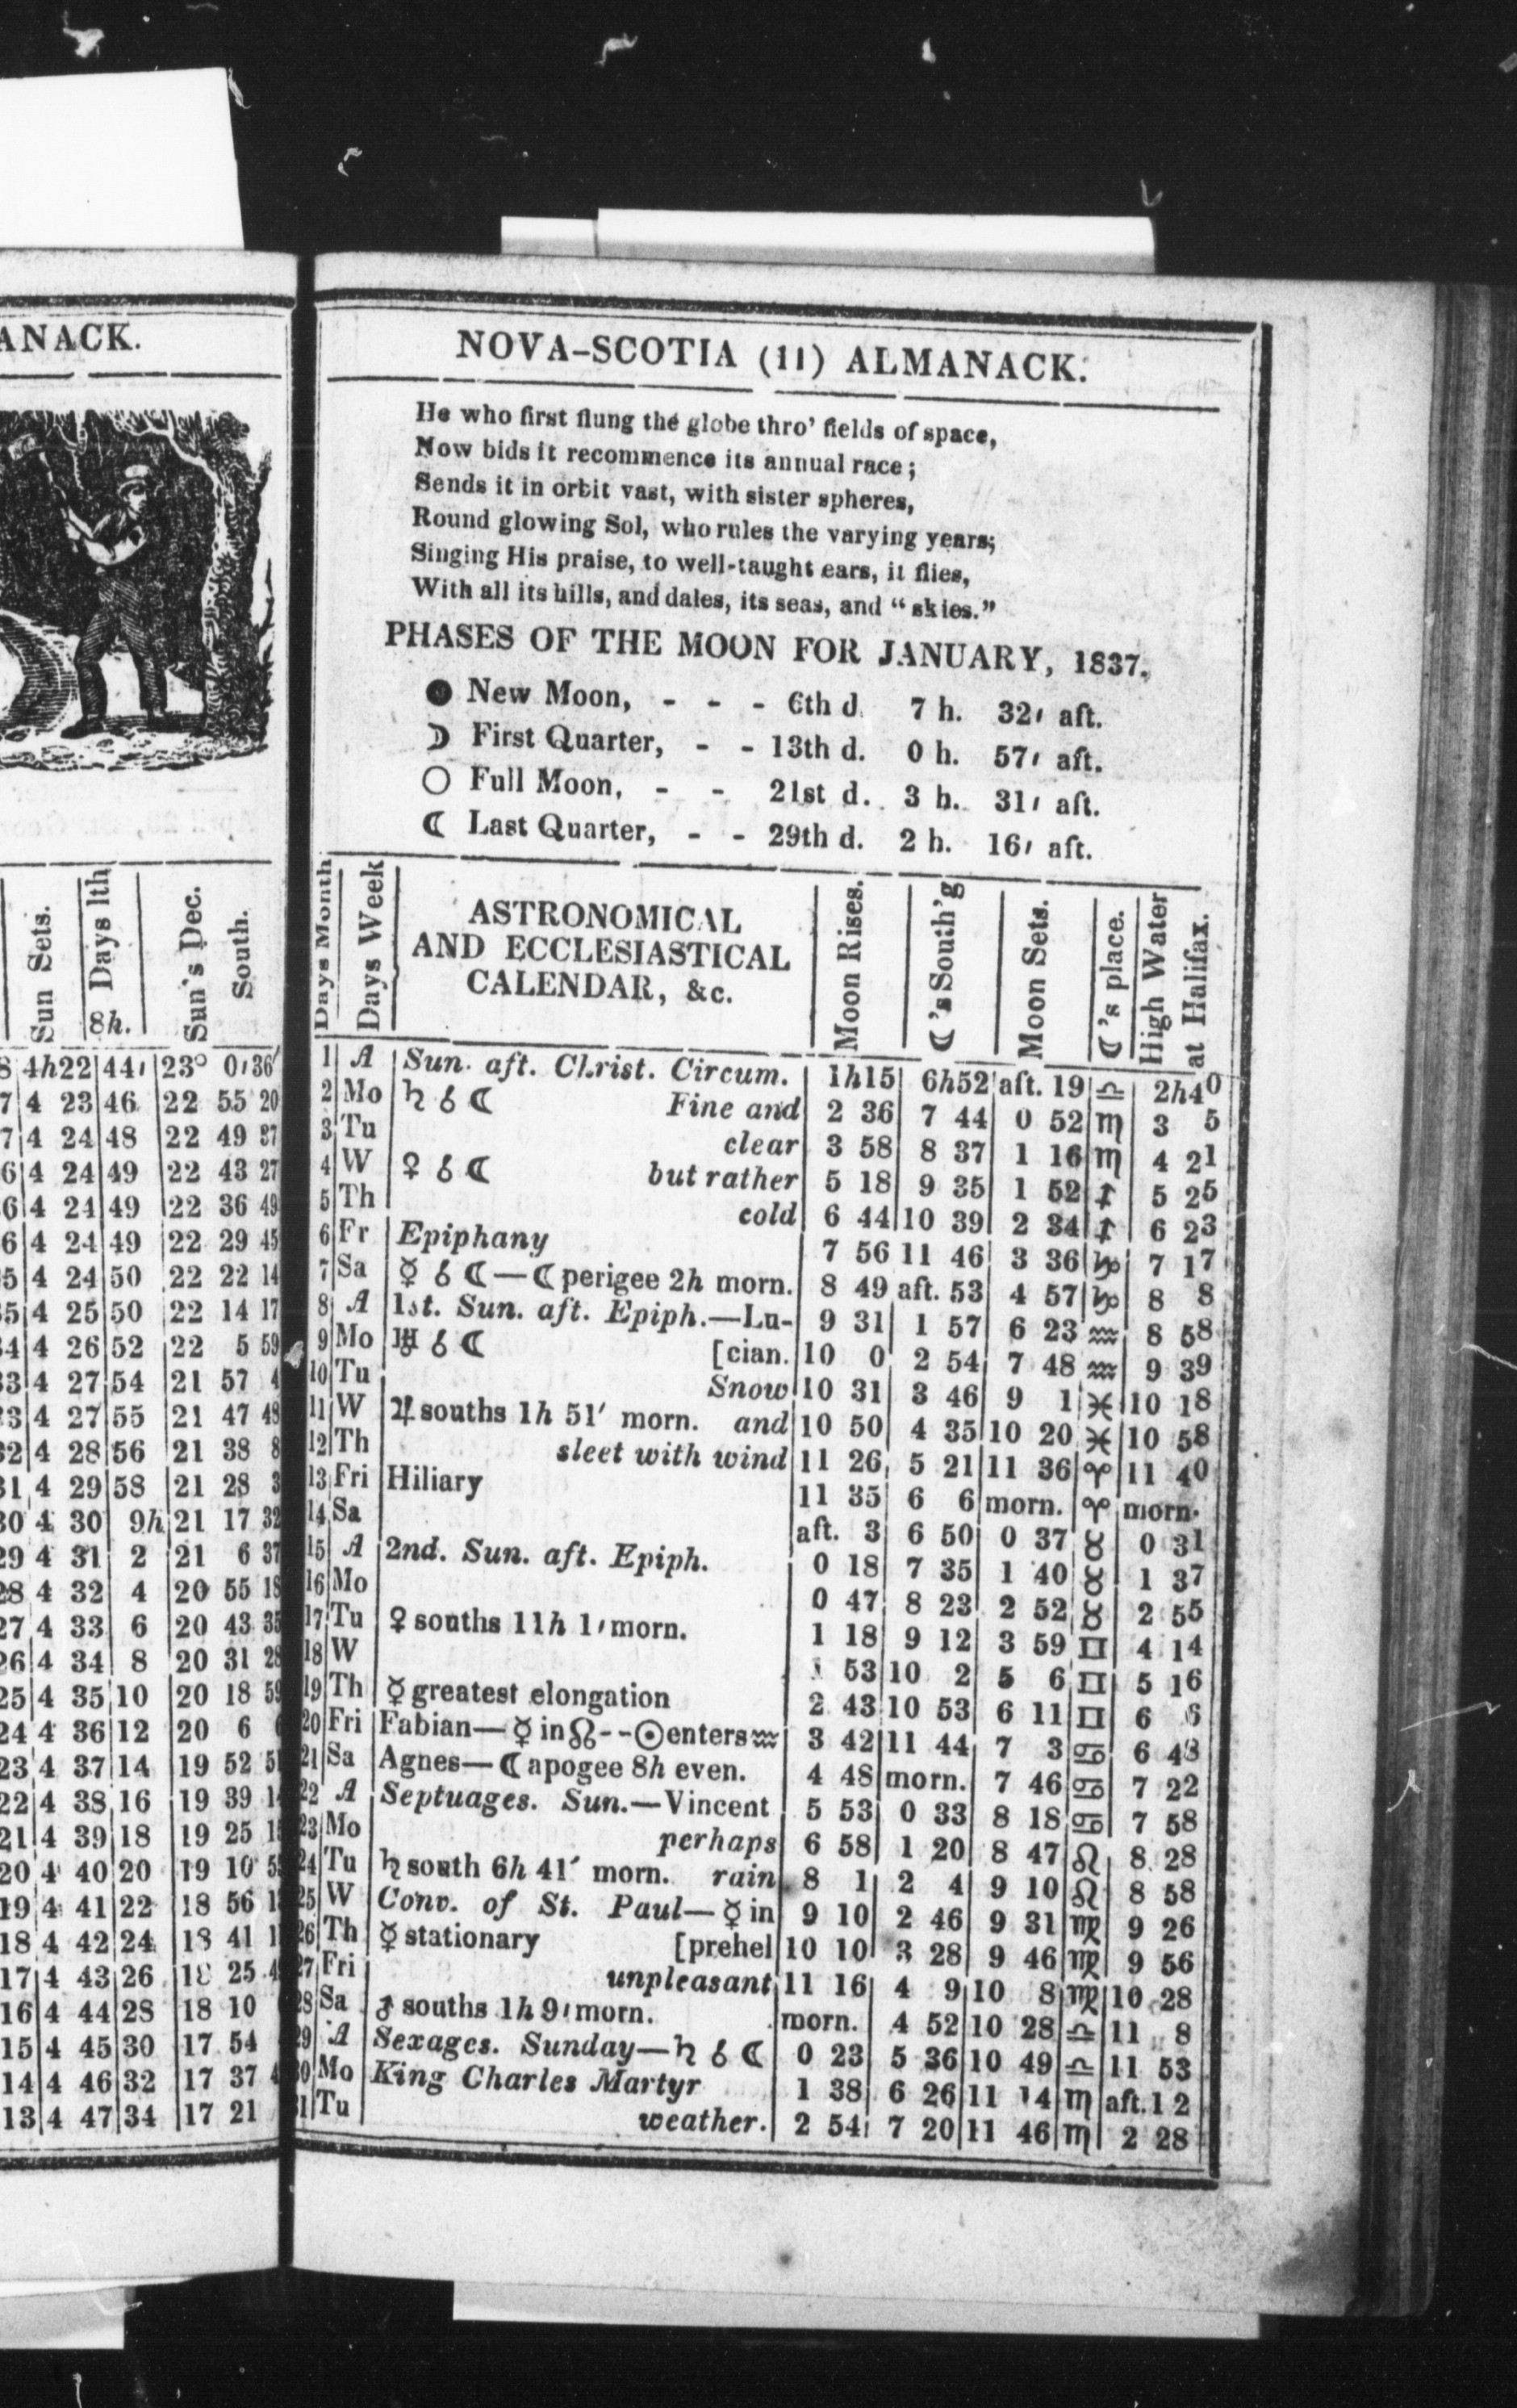 ANACK.
Sun Sets.
Days lth
8h.
Sun's Dec.
South.
8 4h22 44′ 23° 0′36″
7 4 23 46 22 55 20
7 4 24 48 22 49 37
6 4 24 49 22 43 27
6 4 24 49 22 36 49
6 4 24 49 22 29 45
5 4 24 50 22 22 14
5 4 25 50 22 14 17
4 4 26 52 22 5 59
33 4 27 54 21 57 4
33 4 27 55 21 47 48
32 4 28 56 21 38 8
31 4 29 58 21 28 3
30 4 30 9h 21 17 32
29 4 31 2 21 6 37
28 4 32 4 20 55 18
27 4 33 6 20 43 35
26 4 34 8 20 31 28
25 4 35 10 20 18 59
24 4 36 12 20 6
23 4 37 14 19 52
22 4 38 16 19 39
21 4 39 18 19 25
20 4 40 20 19 10
19 4 41 22 18 56
18 4 42 24 18 41
17 4 43 26 18 25
16 4 44 28 18 10
15 4 45 30 17 54
14 4 46 32 17 37
13 4 47 34 17 21
NOVA-SCOTIA (11) ALMANACK.
He who first flung the globe thro' fields of space,
Now bids it recommence its annual race;
Sends it in orbit vast, with sister spheres,
Round glowing Sol, who rules the varying years;
Singing His praise, to well-taught ears, it flies,
With all its hills, and dales, its seas, and "skies."
PHASES OF THE MOON FOR JANUARY, 1837.
● New Moon, - - - 6th d. 7 h. 32′ aft.
☽ First Quarter, - - 13th d. 0 h. 57′ aft.
○ Full Moon, - - 21st d. 3 h. 31′ aft.
☾ Last Quarter, - - 29th d. 2 h. 16′ aft.
Days Month
Days Week
ASTRONOMICAL
AND ECCLESIASTICAL
CALENDAR, &c.
Moon Rises.
☾'s South'g
Moon Sets.
☾'s place.
High Water
at Halifax.
1 A Sun. aft. Christ. Circum. 1h15 6h52 aft. 19 ♎ 2h40
2 Mo ♄ ☌ ☾ Fine and 2 36 7 44 0 52 ♏ 3 5
3 Tu clear 3 58 8 37 1 16 ♏ 4 21
4 W ♀ ☌ ☾ but rather 5 18 9 35 1 52 ♐ 5 25
5 Th cold 6 44 10 39 2 34 ♐ 6 23
6 Fr Epiphany 7 56 11 46 3 36 ♑ 7 17
7 Sa ☿ ☌ ☾—☾ perigee 2h morn. 8 49 aft. 53 4 57 ♑ 8 8
8 A 1st. Sun. aft. Epiph.—Lu- 9 31 1 57 6 23 ♒ 8 58
9 Mo ♅ ☌ ☾ [cian. 10 0 2 54 7 48 ♒ 9 39
10 Tu Snow 10 31 3 46 9 1 ♓ 10 18
11 W ♃ souths 1h 51′ morn. and 10 50 4 35 10 20 ♓ 10 58
12 Th sleet with wind 11 26 5 21 11 36 ♈ 11 40
13 Fri Hiliary 11 35 6 6 morn. ♈ morn.
14 Sa aft. 3 6 50 0 37 ♉ 0 31
15 A 2nd. Sun. aft. Epiph. 0 18 7 35 1 40 ♉ 1 37
16 Mo 0 47 8 23 2 52 ♉ 2 55
17 Tu ♀ souths 11h 1′ morn. 1 18 9 12 3 59 ♊ 4 14
18 W 53 10 2 5 6 ♊ 5 16
19 Th ☿ greatest elongation 2 43 10 53 6 11 ♊ 6 6
20 Fri Fabian—☿ in ☊--☉ enters ♒ 3 42 11 44 7 3 ♋ 6 48
21 Sa Agnes—☾ apogee 8h even. 4 48 morn. 7 46 ♋ 7 22
22 A Septuages. Sun.—Vincent 5 53 0 33 8 18 ♋ 7 58
23 Mo perhaps 6 58 1 20 8 47 ♌ 8 28
24 Tu ♄ south 6h 41′ morn. rain 8 1 2 4 9 10 ♌ 8 58
25 W Conv. of St. Paul—☿ in 9 10 2 46 9 31 ♍ 9 26
26 Th ☿ stationary [prehel 10 10 3 28 9 46 ♍ 9 56
27 Fri unpleasant 11 16 4 9 10 8 ♍ 10 28
28 Sa ♂ souths 1h 9′ morn. morn. 4 52 10 28 ♎ 11 8
29 A Sexages. Sunday—♄ ☌ ☾ 0 23 5 36 10 49 ♎ 11 53
30 Mo King Charles Martyr 1 38 6 26 11 14 ♏ aft.12
31 Tu weather. 2 54 7 20 11 46 ♏ 2 28